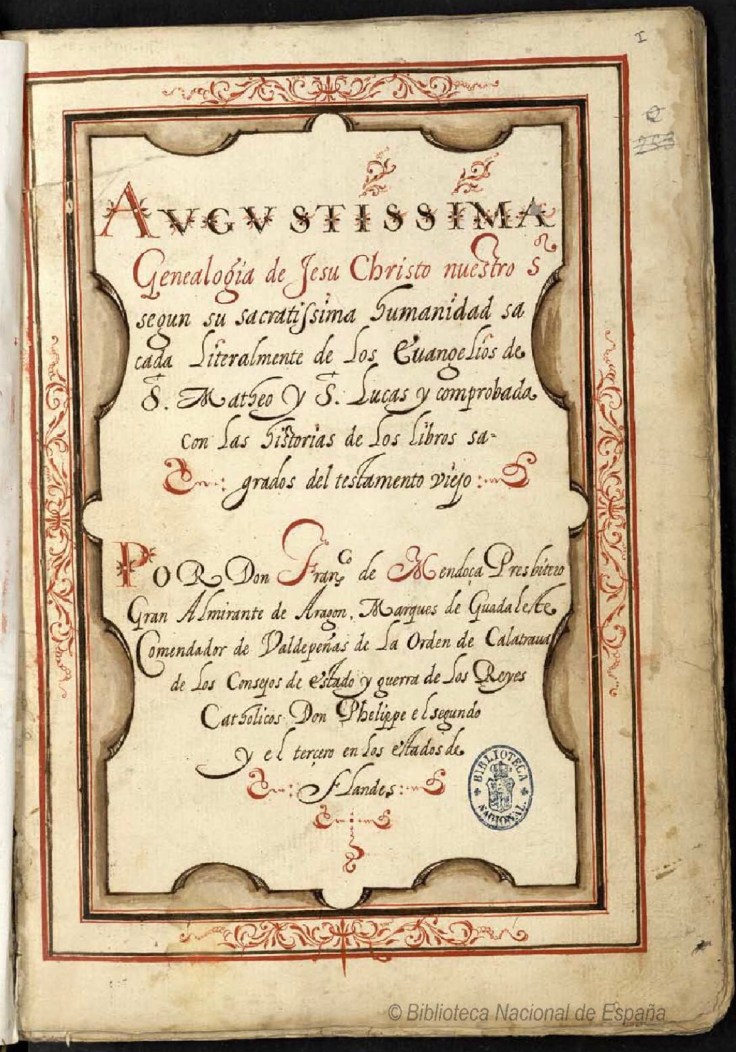 I
C
753
AVGVSTISSIMA
Genealogia de Jesu Christo nuestro S
segun su sacratissima humanidad sa
cada literalmente de los Euangelios de
S. Matheo y S. Lucas y comprobada
con las historias de los libros sa-
grados del testamento viejo
POR Don Franco de Mendoça Presbitero
Gran Almirante de Aragon, Marques de Guadaleste
Comendador de Valdepeñas de la Orden de Calatraua
de los Consejos de estado y guerra de los Reyes
Catholicos Don Phelippe el segundo
y el tercero en los estados de
Flandes
BIBLIOTECA
NACIONAL
© Biblioteca Nacional de España